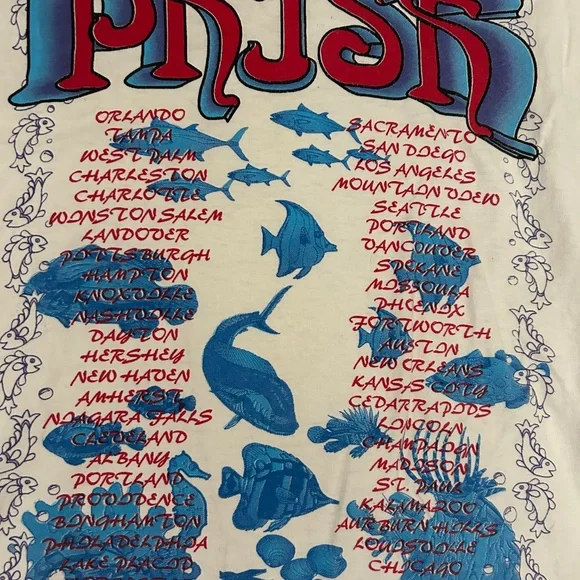 PHISH
ORLANDO
TAMPA
WEST PALM
CHARLESTON
CHARLOTTE
WINSTON SALEM
LANDOVER
PITTSBURGH
HAMPTON
KNOXVILLE
NASHVILLE
DAYTON
HERSHEY
NEW HAVEN
AMHERST
NIAGARA FALLS
CLEVELAND
ALBANY
PORTLAND
PROVIDENCE
BINGHAMTON
PHILADELPHIA
LAKE PLACID
SACRAMENTO
SAN DIEGO
LOS ANGELES
MOUNTAIN VIEW
SEATTLE
PORTLAND
VANCOUVER
SPOKANE
MISSOULA
PHOENIX
FORT WORTH
AUSTIN
NEW ORLEANS
KANSAS CITY
CEDAR RAPIDS
LINCOLN
CHAMPAIGN
MADISON
ST. PAUL
KALAMAZOO
AURBURN HILLS
LOUISVILLE
CHICAGO